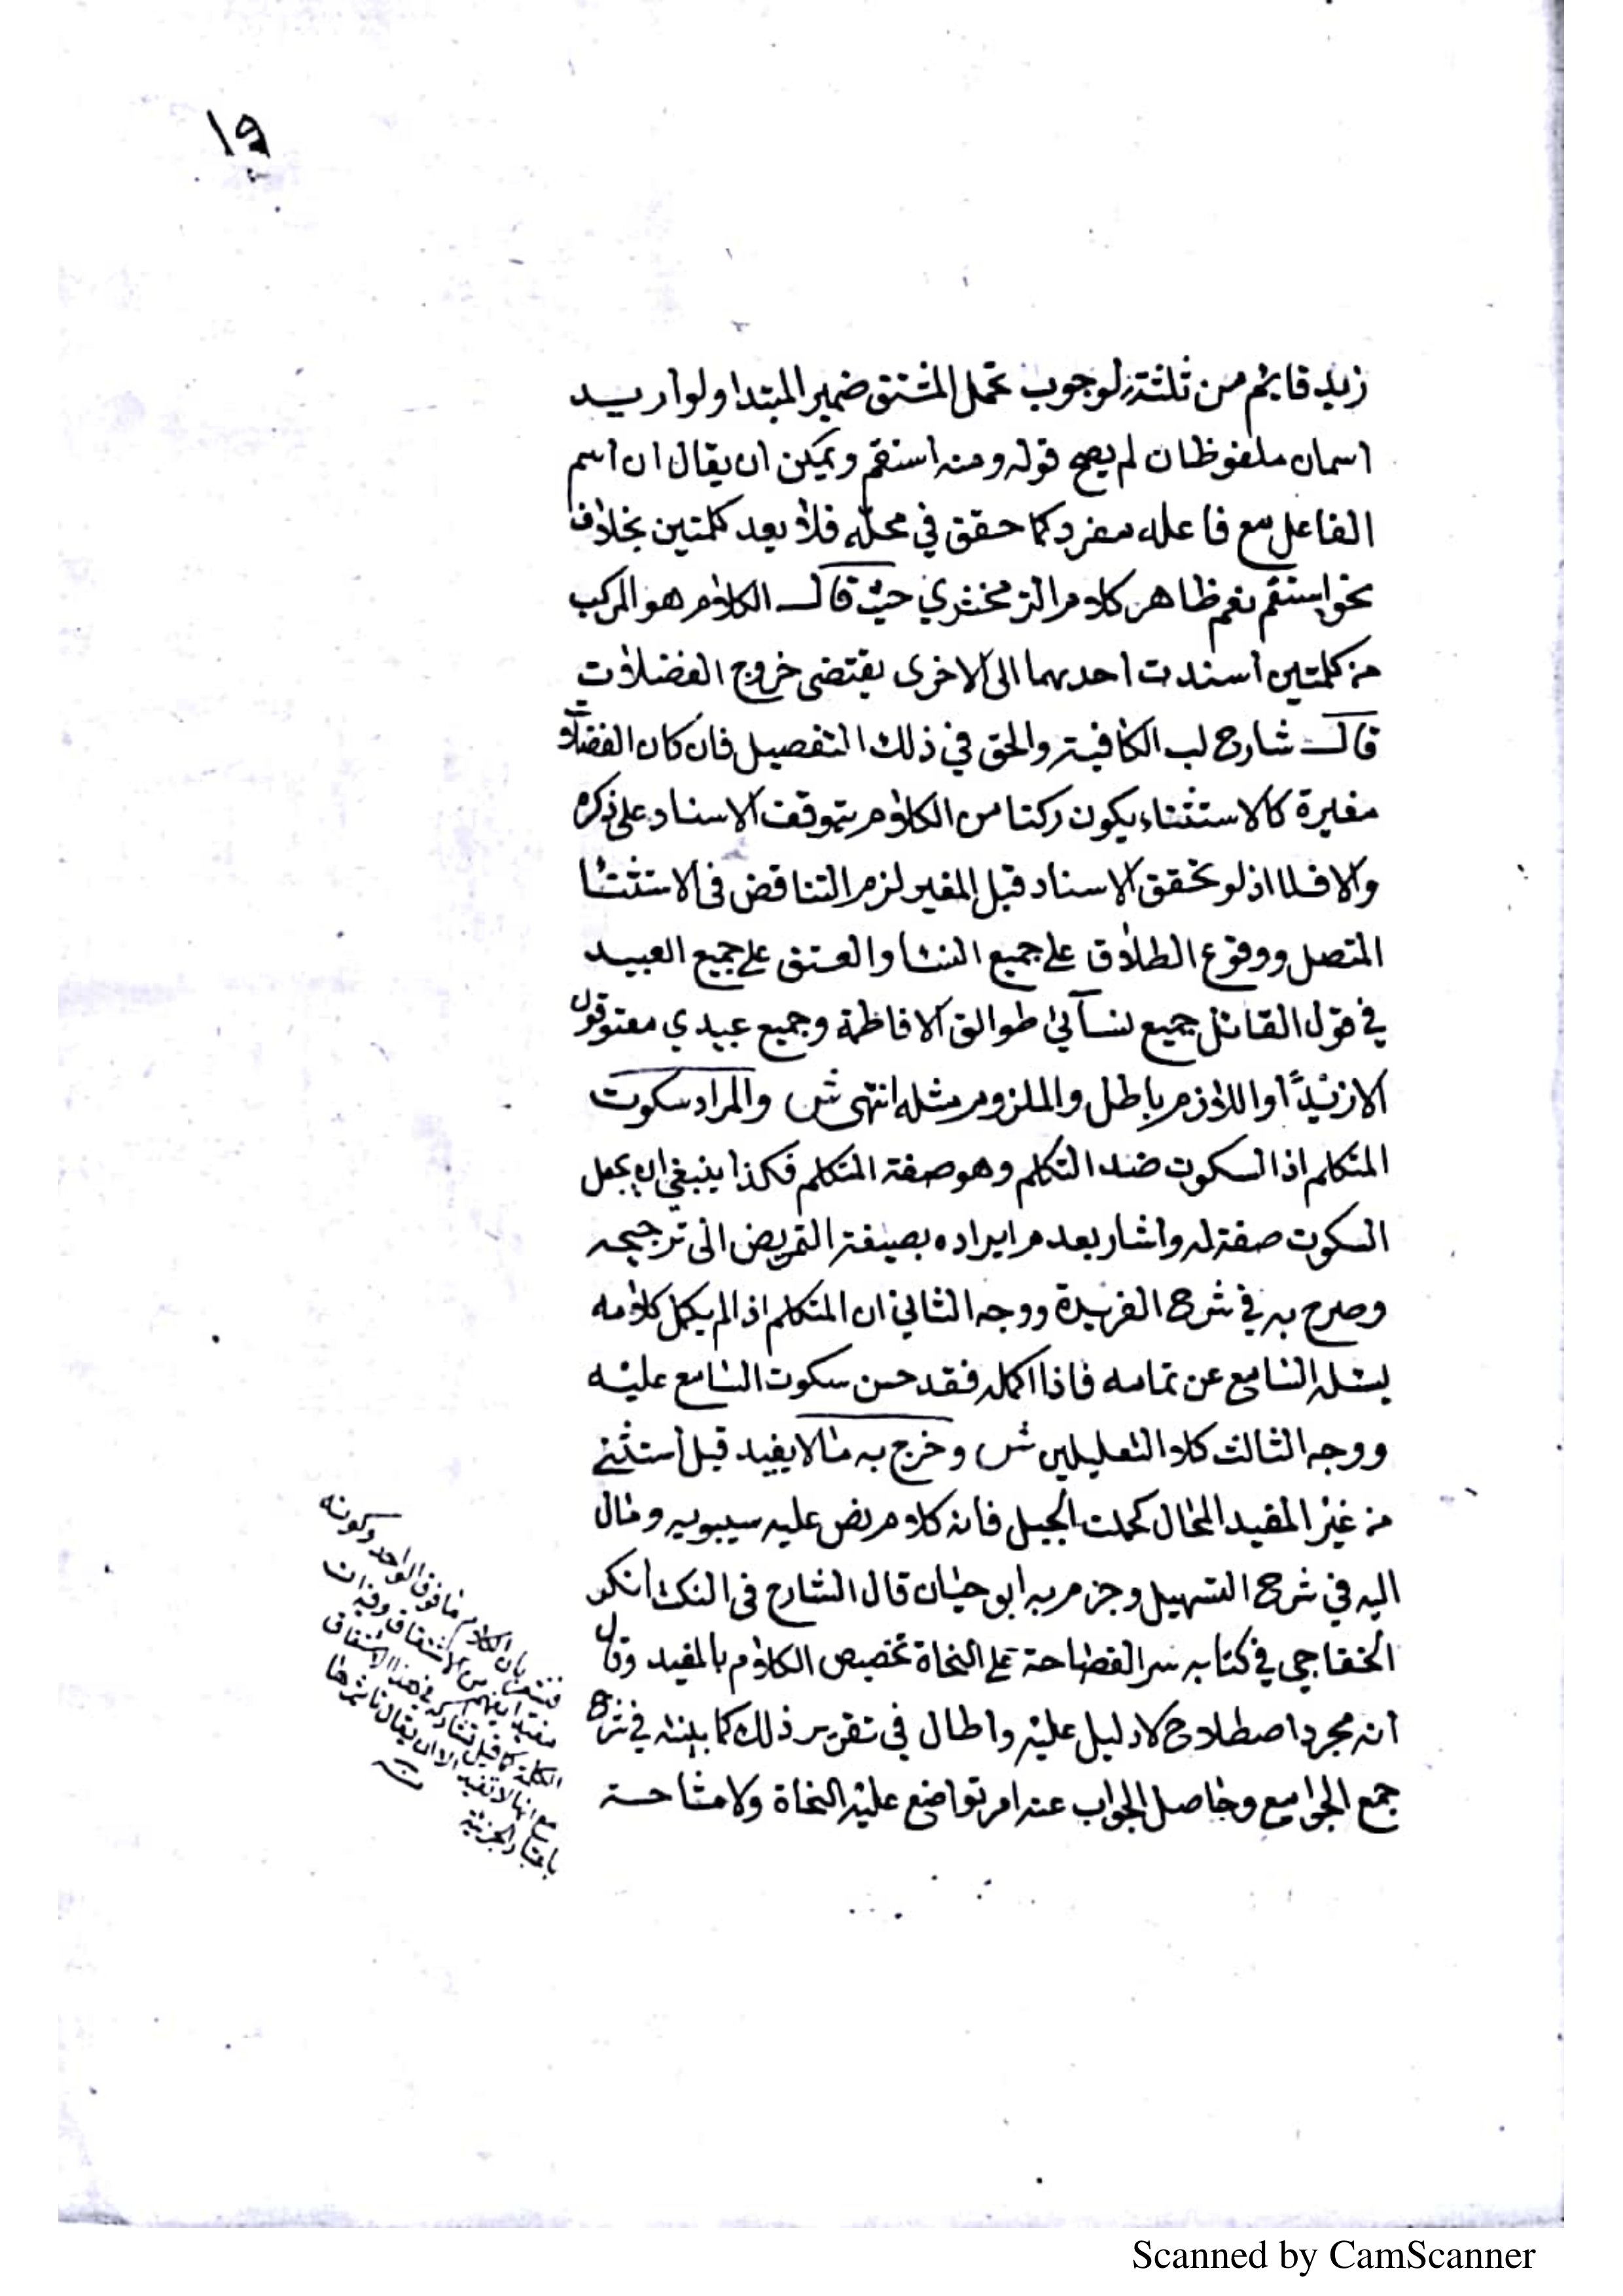 ١٩
زيد قايم من ثلثة لوجوب تحمل المشتق ضمير المبتدا ولو اريد
اسمان ملفوظان لم يصح قوله ومنه استقم ويمكن ان يقال ان اسم
الفاعل مع فاعله مفرد كما حقق في محله فلا يعد كلمتين بخلاف
نحو استقم نعم ظاهر كلام الزمخشري حيث قال الكلام هو المركب
من كلمتين اسندت احديهما الى الاخرى يقتضى خروج الفضلات
قال شارح لب الكافية والحق في ذلك التفصيل فان كان الفضلات
مغيرة كالاستثناء يكون ركنا من الكلام يتوقف الاسناد على ذكره
والا فلا اذ لو تحقق الاسناد قبل المغير لزم التناقض فى الاستثنا
المتصل ووقوع الطلاق على جميع النسا والعتق على جميع العبيد
في قول القائل جميع نسآئي طوالق الا فاطمة وجميع عبيدي معتوقون
الا زيدًا واللازم باطل والملزوم مثله انتهى ش والمراد سكوت
المتكلم اذ السكوت ضد التكلم وهو صفة المتكلم فكذا ينبغي ان يجعل
السكوت صفة له واشار بعدم ايراده بصيغة التمريض الى ترجيحه
وصرح به في شرح الفريدة ووجه الثاني ان المتكلم اذا لم يكمل كلامه
يسئله السامع عن تمامه فاذا اكمله فقد حسن سكوت السامع عليه
ووجه الثالث كلا التعليلين ش وخرج به ما لا يفيد قيل استثنى
من غير المفيد المحال كحملت الجبل فانه كلام نص عليه سيبويه ومال
اليه في شرح التسهيل وجزم به ابو حيان قال الشارح فى النكت انكر
الخفاجي في كتابه سر الفصاحة على النحاة تخصيص الكلام بالمفيد وقال
انه مجرد اصطلاح لا دليل عليه واطال في تقرير ذلك كما بينته في شرح
جمع الجوامع وحاصل الجواب عنه امر تواضع عليه النحاة ولا مشاحة
بان الكلام ما فوق الواحد وكونه
مفيدا يفهم من الاشتقاق وفيه ان
الكلمة كما قيل تشاركه في هذا الاشتقاق
مع انها لا تفيد الا ان يقال تاثيرها
باعتبار الجزئية
Scanned by CamScanner